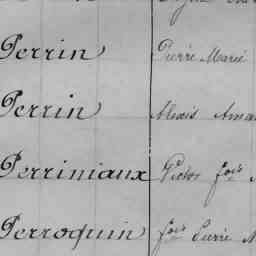 Perrin Pierre Marie
Perrin Alexis
Perriniaux Victor fois
Perroquin fois Pierre